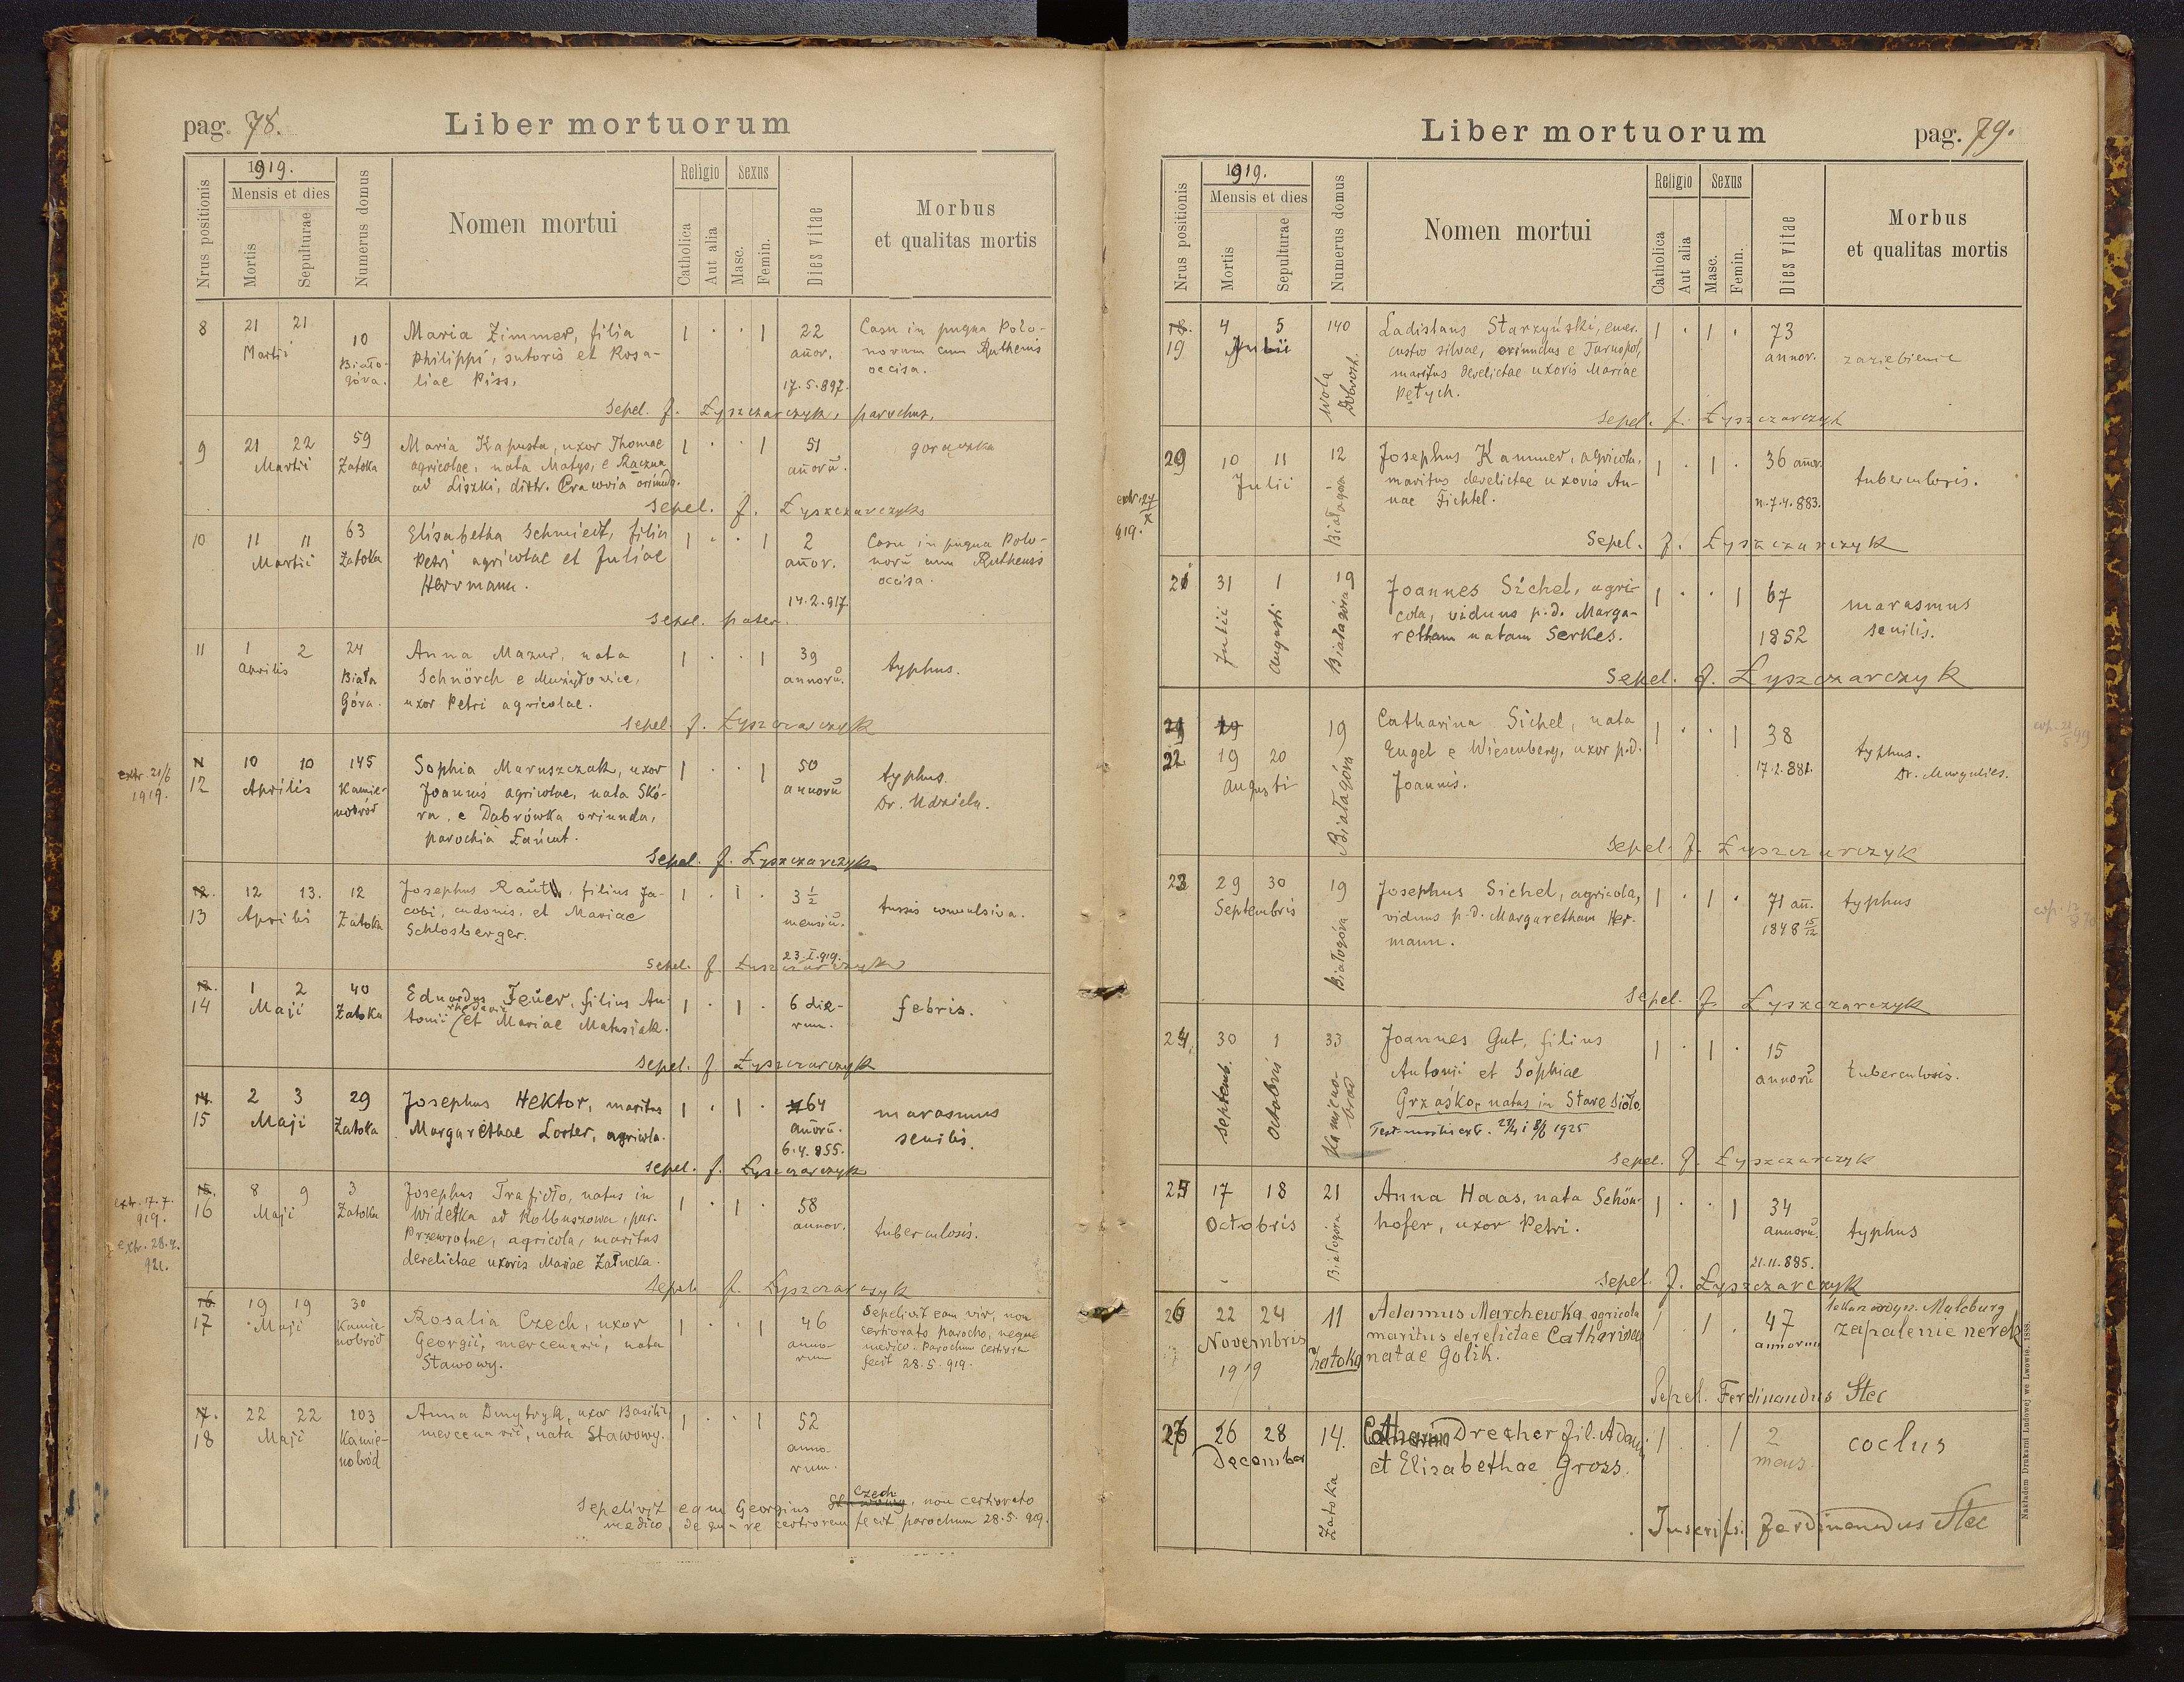 pag. 78.
Liber mortuorum
Nrus positionis
1919.
Mensis et dies
Mortis
Sepulturae
Numerus domus
Nomen mortui
Religio
Catholica
Aut alia
Sexus
Masc.
Femin.
Dies vitae
Morbus
et qualitas mortis
8
21 21
Martii
10
Biało-
góra.
Maria Zimmer, filia
Philippi, sutoris et Rosa-
liae Piss.
1 . . 1
22
añor.
17.5.897.
Casu in pugna Polo-
norum cum Ruthenis
occisa.
Sepel. J. Łyszczarczyk, parochus.
9
21 22
Martii
59
Zatoka
Maria Kapusta, uxor Thomae
agricolae, nata Matys, e Rączna
ad Liszki, distr. Cracovia oriunda.
1 . . 1
51
añorū.
gorączka
Sepel. J. Łyszczarczyk
10
11 11
Martii
63
Zatoka
Elisabetha Schmiedt, filia
Petri agricolae et Juliae
Herrmann.
1 . . 1
2
añor.
14.2.917.
Casu in pugna Polo-
norū cum Ruthenis
occisa.
Sepel. pater.
11
1 2
Aprilis
24
Biała
Góra.
Anna Mazur, nata
Schnörch e Mużyłowice,
uxor Petri agricolae.
1 . . 1
39
annorū.
typhus.
Sepel. J. Łyszczarczyk
extr. 21/6
1919.
12
10 10
Aprilis
145
Kamie-
nobród
Sophia Maruszczak, uxor
Joannis agricolae, nata Skó-
ra, e Dąbrówka oriunda,
parochia Łańcut.
1 . . 1
50
annorū
typhus.
Dr. Udziela.
Sepel. J. Łyszczarczyk
12.
13
12 13.
Aprilis
12
Zatoka
Josephus Rauth, filius Ja-
cobi, cudonis, et Mariae
Schlosberger.
1 . 1 .
3 1/2
mensiū.
23.I.919.
tussis convulsiva.
Sepel. J. Łyszczarczyk
13.
14
1 2
Maji
40
Zatoka
Eduardus Feuer, filius An-
tonii et Mariae Matusiak.
1 . 1 .
6 die-
rum.
febris.
Sepel. J. Łyszczarczyk
14.
15
2 3
Maji
29
Zatoka
Josephus Hektor, maritus
Margarethae Lorter, agricola.
1 . 1 .
64
añorū.
6.4.855.
marasmus
senilis.
Sepel. J. Łyszczarczyk
extr. 7.7.
919.
extr. 28.4.
921.
15.
16
8 9
Maji
3
Zatoka
Josephus Trafidło, natus in
Widełka ad Kolbuszowa, par.
Przewrotne, agricola, maritus
derelictae uxoris Mariae Załucka.
1 . 1 .
58
annor.
tuberculosis.
Sepel. J. Łyszczarczyk
16
17
19 19
Maji
30
Kamie
nobród
Rosalia Czech, uxor
Georgii, mercenarii, nata
Stawowy.
1 . . 1
46
anno-
rum
Sepelivit eam vir, non
certiorato parocho, neque
medico. Parochum certiorem
fecit 28.5.919.
17.
18
22 22
Maji
103
Kamie-
nobród
Anna Dmytryk, uxor Basilii,
mercenarii, nata Stawowy.
1 . . 1
52
anno-
rum.
Czech
Sepelivit eam Georgius Stawowy, non certiorato
medico, de qua re certiorem fecit parochum 28.5.919.
Liber mortuorum
pag. 79.
Nrus positionis
1919.
Mensis et dies
Mortis
Sepulturae
Numerus domus
Nomen mortui
Religio
Catholica
Aut alia
Sexus
Masc.
Femin.
Dies vitae
Morbus
et qualitas mortis
18.
19
4 5
Julii
140
Wola
Dobrosk.
Ladislaus Starzyński, emer.
custos silvae, oriundus e Tarnopol,
maritus derelictae uxoris Mariae
Petych.
1 . 1 .
73
annor.
zaziębienie
Sepel. J. Łyszczarczyk
extr. 27/X
919.
20
10 11
Julii
12
Białagóra
Josephus Kammer, agricola,
maritus derelictae uxoris An-
nae Fichtel.
1 . 1 .
36 añor.
n.7.4.883.
tuberculosis.
Sepel. J. Łyszczarczyk
21
31 1
Julii
Augusti
19
Białagóra
Joannes Sichel, agri-
cola, viduus p.d. Marga-
retham natam Serkes.
1 . . 1
67
1852
marasmus
senilis.
Sepel. J. Łyszczarczyk
21
22
19
19 20
Augusti
19
Białagóra
Catharina Sichel, nata
Engel e Wiesenberg, uxor p.d.
Joannis.
1 . . 1
38
17.2.881.
typhus.
Dr. Margulies.
Sepel. J. Łyszczarczyk
23
29 30
Septembris
19
Białogóra
Josephus Sichel, agricola,
viduus p.d. Margaretham Her-
mann.
1 . 1 .
71 añ.
1848 15/12
typhus
Sepel. J. Łyszczarczyk
24
30 1
Septemb.
Octobris
33
Kamieno-
bród
Joannes Gut, filius
Antonii et Sophiae
Grząśko, natus in Stare Sioło.
1 . 1 .
15
annorū
tuberculosis.
Sepel. J. Łyszczarczyk
25
17 18
Octobris
21
Białogóra
Anna Haas, nata Schön-
hofer, uxor Petri.
1 . . 1
34
annorū.
21.11.885.
typhus
Sepel. J. Łyszczarczyk
26
22 24
Novembris
1919
11
Zatoka
Adamus Marchewka agricola
maritus derelictae Catharinae
natae Golik.
1 . 1 .
47
annorum
lekarz ordyn. Malcburg
zapalenie nerek
Sepel. Ferdinandus Stec
27
26 28
December
14.
Zatoka
Catharina Drecher fil. Adami
et Elisabethae Gross.
1 . . 1
2
mens.
coclus
Inscripsi Ferdinandus Stec
Nakładem Drukarni Ludowej we Lwowie. 1888.